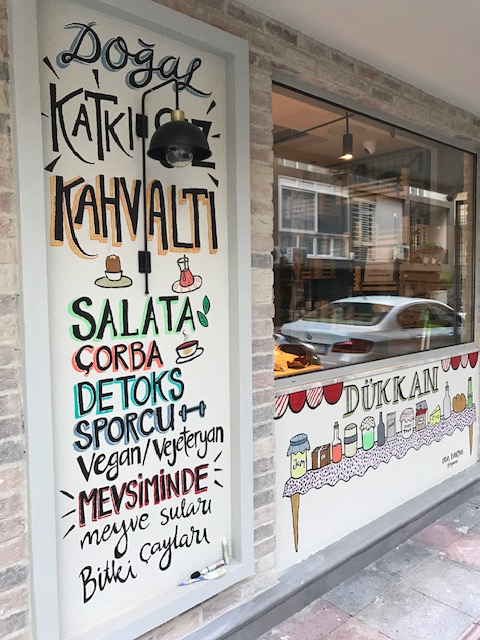 Doğal
KATKISIZ
KAHVALTI
SALATA
ÇORBA
DETOKS
SPORCU
Vegan/Vejeteryan
MEVSİMİNDE
meyve suları
Bitki çayları
DÜKKAN
Jam